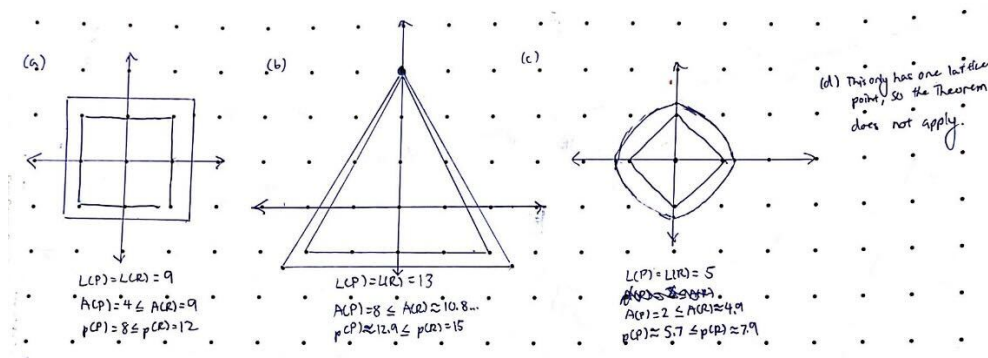 (a)
L(P)=L(R)=9
A(P)=4≤ A(R)=9
p(P)=8≤p(R)=12
(b)
L(P)=L(R)=13
A(P)=8 ≤ A(R)≈10.8...
p(P)≈12.9≤ p(R)=15
(c)
L(P)=L(R)= 5
A(P)=2 ≤A(R)≈4.9
p(P)≈ 5.7 ≤p(R)≈7.9
(d) This only has one lattice
point, so the Theorem
does not apply.